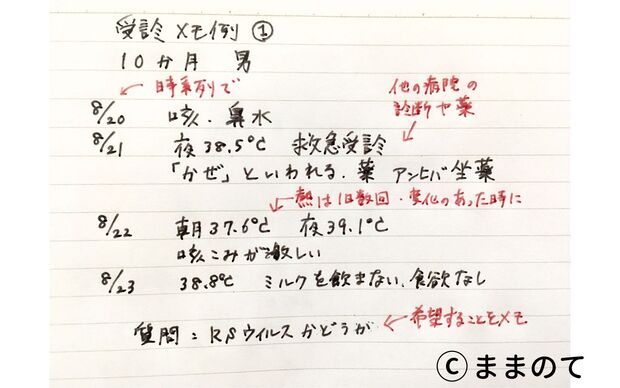 受診メモ例①
10か月 男
時系列で
他の病院の
診断や薬
8/20 咳・鼻水
8/21 夜38.5℃ 救急受診
「かぜ」といわれる。薬 アンヒバ坐薬
熱は1日数回・変化のあった時に
8/22 朝37.6℃ 夜39.1℃
咳こみが激しい
8/23 38.8℃ ミルクを飲まない、食欲なし
質問：RSウイルスかどうか
希望することをメモ
©ままのて